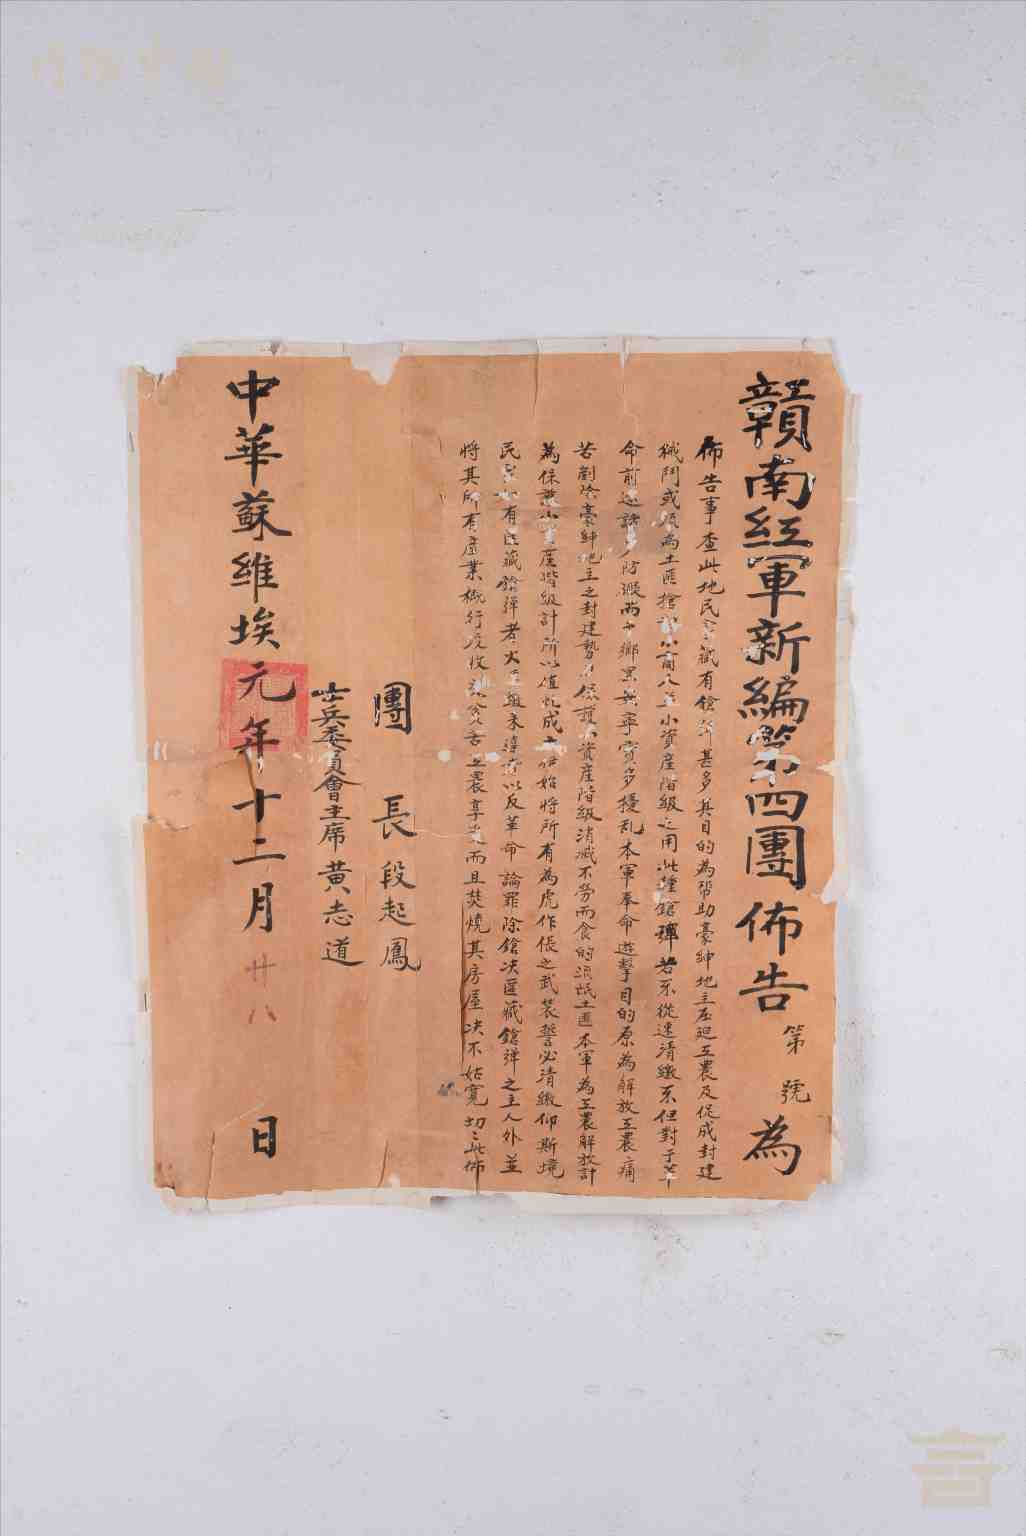 贛南紅軍新編第四團佈告 第 號 為
佈告事查此地民藏有鎗彈甚多其目的為幫助豪紳地主壓廹工農及促成封建
械鬥或為土匪搶小商人至小資産階級之用此種鎗彈若不從速清繳不但對于革
命前途諸多防碍而中鄉黑無寧實多擾乱本軍奉命遊擊目的原為解放工農痛
苦剷除豪紳地主之封建勢力保護小資産階級消滅不勞而食的流氓土匪本軍為工農解放計
為保護小資産階級計所以值成立伊始將所有為虎作倀之武裝誓必清繳仰斯境
民如有匿藏鎗弹者火速繳來違者以反革命論罪除鎗决匿藏鎗弹之主人外並
將其所有産業概行没收貧苦工農享受而且焚燒其房屋决不姑寛切切此佈
團 長 段起鳳
士兵委員會主席 黄志道
中華蘇維埃元年十二月廿八日